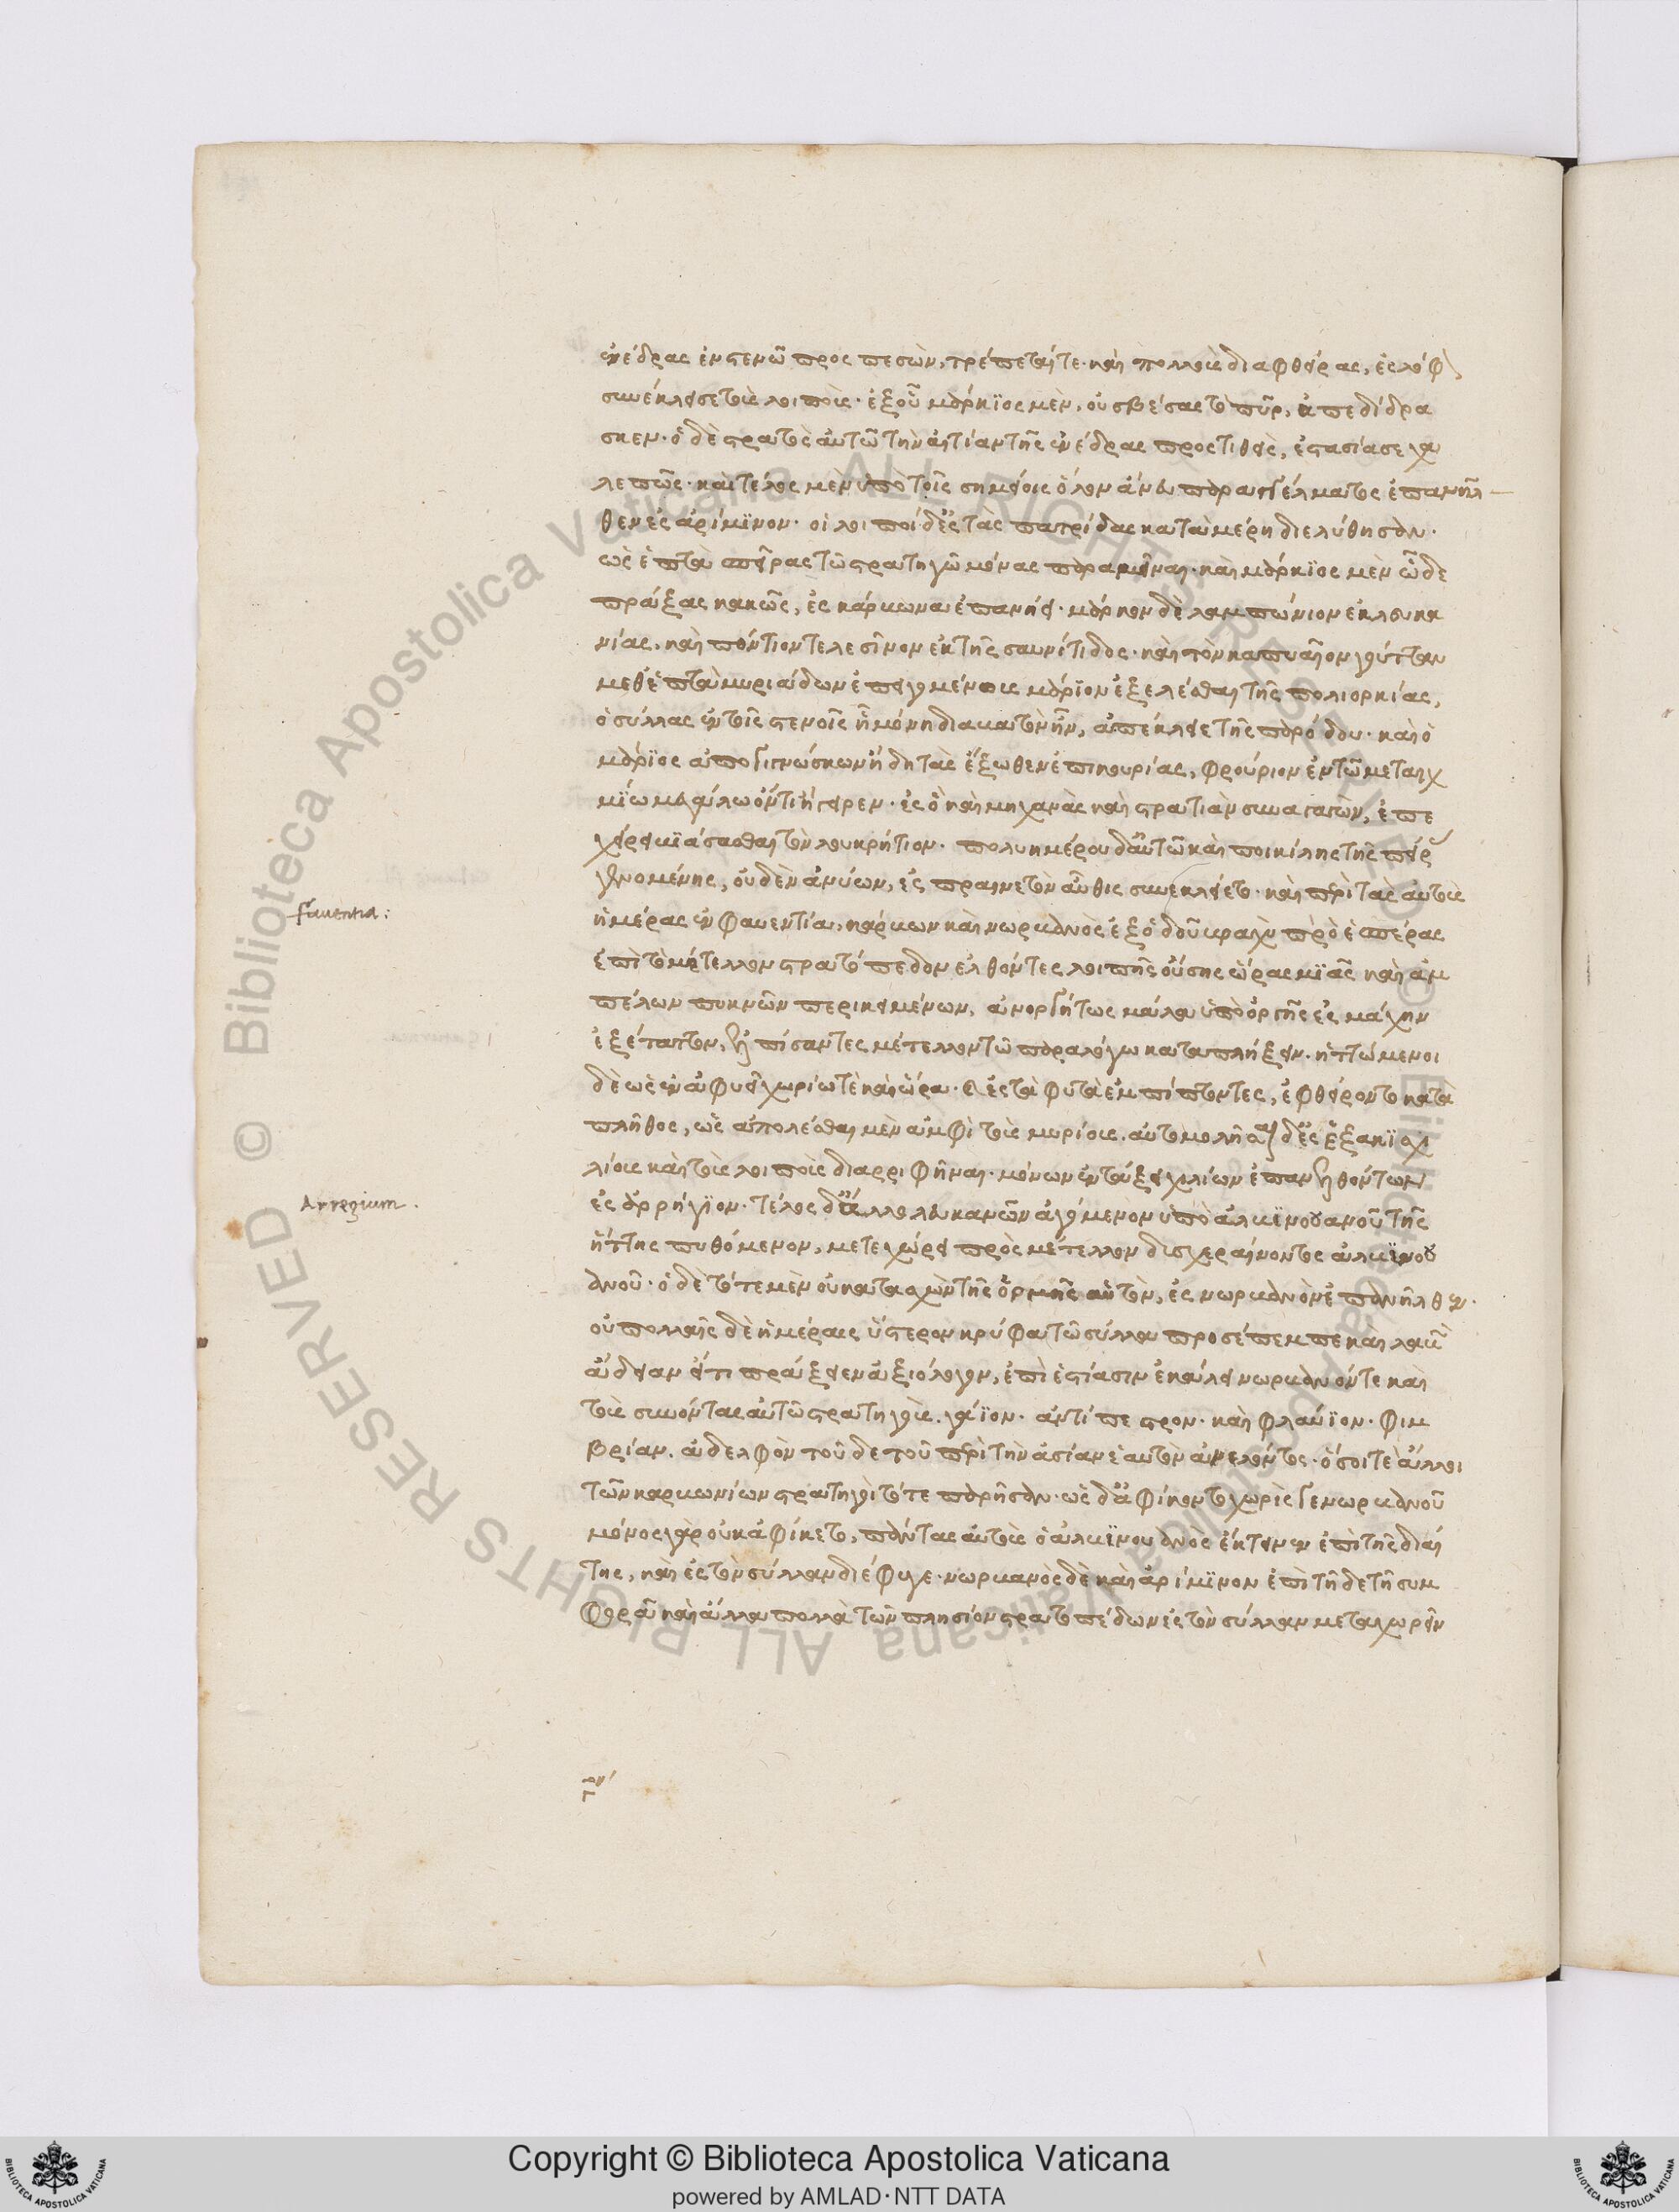 ἐνέδρας ἐν στενῶ προσπεσὼν, τρέπεταί τε· καὶ πολλοὺς διαφθείρας, ἐς λόφ
συνέκλεισε τοὺς λοιποὺς· ἐξ οὗ μάρκϊος μὲν, οὐ σβέσας τὸ πῦρ, ἀπεδίδρα
σκεν· ὁ δὲ στρατὸς αὐτῶ τὴν αἰτίαν τῆς ἐνέδρας προστιθεὶς, ἐστασίασε χα
λεπῶς· καὶ τέλος μὲν ὑπὸ τοῖς σημείοις ὅλον ἄνευ παραγγέλματος ἐπανῆλ
θεν ἐς ἀρίμϊνον· οἱ λοιποὶ δ' ἐς τὰς πατρίδας κατὰ μέρη διελύθησαν·
ὡς ἑπτὰ σπείρας τῶ στρατηγῶ μόνας παραμεῖναι· καὶ μάρκϊος μὲν ὧδε
πράξας κακῶς, ἐς κάρκωνα ἐπανήει· μάρκον δὲ λαμπώνιον ἐκ λευκα
νίας, καὶ πόντιον τελεσῖνον ἐκ τῆς σαυνίτιδος· καὶ τὸν καπυαῖον γύτταν
μεθ' ἑπτὰ μυριάδων ἐπειγομένους μάρϊον ἐξελέσθαι τῆς πολιορκίας,
ὁ σύλλας ἐν τοῖς στενοῖς ᾗ μόνη διαβατὸν ἦν, ἀπέκλειε τῆς παρόδου· καὶ ὁ
μάρϊος ἀπογιγνώσκων ἤδη τὰς ἔξωθεν ἐπικουρίας, φρούριον ἐν τῶ μεταιχ
μΐω μεγάλω ὄντι ἤγειρεν· ἐς ὃ καὶ μηχανὰς καὶ στρατιὰν συναγαγὼν, ἐπε
χείρει βϊάσασθαι τὸν λουκρήτιον· πολυημέρου δ' αὐτῶ καὶ ποικίλης τῆς πείρ
γενομένης, οὐδὲν ἀνύων, ἐς πραινετὸν αὖθις συνεκλείετο· καὶ περὶ τὰς αὐτὰς
ἡμέρας ἐν φαυεντία, κάρκων καὶ νωρκανὸς ἐξ ὁδοῦ βραχὺ πρὸ ἑσπέρας
ἐπὶ τὸ μέτελλον στρατόπεδον ἐλθόντες λοιπῆς οὔσης ὥρας μϊᾶς καὶ ἀμ
πέλων πυκνῶν περικειμένων, ἀνοργήτως μάλα ὑπὸ ὀργῆς ἐς μάχην
ἐξέταττον, ἐλπίσαντες μέτελλον τῶ παραλόγω καταπλήξειν· ἡττώμενοι
δὲ ὡς ἐν ἀφυεῖ χωρίω τὲ καὶ ὥρα· καὶ ἐς τὰ φυτὰ ἐμπίπτοντες, ἐφθείροντο κατὰ
πλῆθος, ὡς ἀπολέσθαι μὲν ἀμφὶ τοὺς μυρίους· αὐτομολῆσαι δ' ἐς ἑξακϊσχι
λίους καὶ τοὺς λοιποὺς διαρριφῆναι· μόνων ἐν τάξει χιλίων ἐπανελθόντων
ἐς ἀρρήγϊον· τέλος δ' ἄλλο λευκανῶν ἀγόμενον ὑπὸ ἀλκϊνουανοῦ τῆς
ἥττης πυθόμενον, μετεχώρει πρὸς μέτελλον δυσχεραίνοντος ἀλκϊνου
ανοῦ· ὁ δὲ τότε μὲν οὐ κατασχὼν τῆς ὁρμῆς αὐτὸν, ἐς νωρκανὸν ἐπανῆλθεν·
οὐ πολλαῖς δὲ ἡμέραις ὕστερον κρύφα τῶ σύλλα προσέπεμπε καὶ λαβὼ
ἄδειαν εἴ τι πράξειεν ἀξιόλογον, ἐπὶ ἑστίασιν ἐκάλει νωρκανόν τε καὶ
τοὺς συνόντας αὐτῶ στρατηγοὺς· γάϊον· ἀντίπεστρον· καὶ φλαύϊον· φιμ
βρίαν· ἀδελφὸν τοῦδε τοῦ περὶ τὴν ἀσίαν ἑαυτὸν ἀνελόντος· ὅσοι τε ἄλλοι
τῶν καρκωνίων στρατηγοὶ τότε παρῆσαν· ὡς δ' ἀφίκοντο χωρὶς γε νωρκανοῦ
μόνος γὰρ οὐκ ἀφίκετο, πάντας αὐτοὺς ὁ ἀλκϊνουανὸς ἔκτεινεν ἐπὶ τῆς διαί
της, καὶ ἐς τὸν σύλλαν διέφυγε· νωρκανὸς δὲ καὶ ἀρίμϊνον ἐπὶ τῆδε τῆ συμ
φορᾶ καὶ ἄλλα πολλὰ τῶν πλησίον στρατοπέδων ἐς τὸν σύλλαν μεταχωρεῖν
fauentia:
Arregium.
Copyright © Biblioteca Apostolica Vaticana
powered by AMLAD·NTT DATA